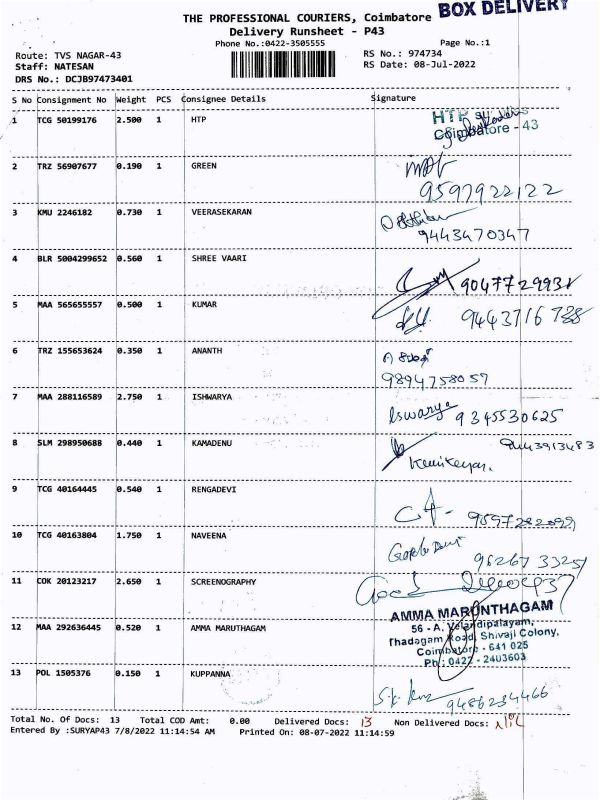 BOX DELIVERY
THE PROFESSIONAL COURIERS, Coimbatore
Delivery Runsheet - P43
Phone No.:0422-3505555
Page No.:1
Route: TVS NAGAR-43
RS No.: 974734
Staff: NATESAN
RS Date: 08-Jul-2022
DRS No.: DCJB97473401
S No Consignment No Weight PCS Consignee Details Signature
1 TCG 50199176 2.500 1 HTP HTP
Coimbatore - 43
2 TRZ 56907677 0.190 1 GREEN
9597922122
3 KMU 2246182 0.730 1 VEERASEKARAN
9443470347
4 BLR 5004299652 0.560 1 SHREE VAARI
5 MAA 565655557 0.500 1 KUMAR
6 TRZ 155653624 0.350 1 ANANTH
9894758057
7 MAA 288116589 2.750 1 ISHWARYA Iswarya 9345530625
8 SLM 298950688 0.440 1 KAMADENU 9443913483
9 TCG 40164445 0.540 1 RENGADEVI
10 TCG 40163804 1.750 1 NAVEENA
11 COK 20123217 2.650 1 SCREENOGRAPHY
AMMA MARUNTHAGAM
12 MAA 292636445 0.520 1 AMMA MARUTHAGAM 56 - A, Velandipalayam,
Thadagam Road, Shivaji Colony,
Coimbatore - 641 025
Ph : 0422 - 2403603
13 POL 1505376 0.150 1 KUPPANNA
9486234466
Total No. Of Docs: 13 Total COD Amt: 0.00 Delivered Docs: 13 Non Delivered Docs: Nil
Entered By :SURYAP43 7/8/2022 11:14:54 AM Printed On: 08-07-2022 11:14:59